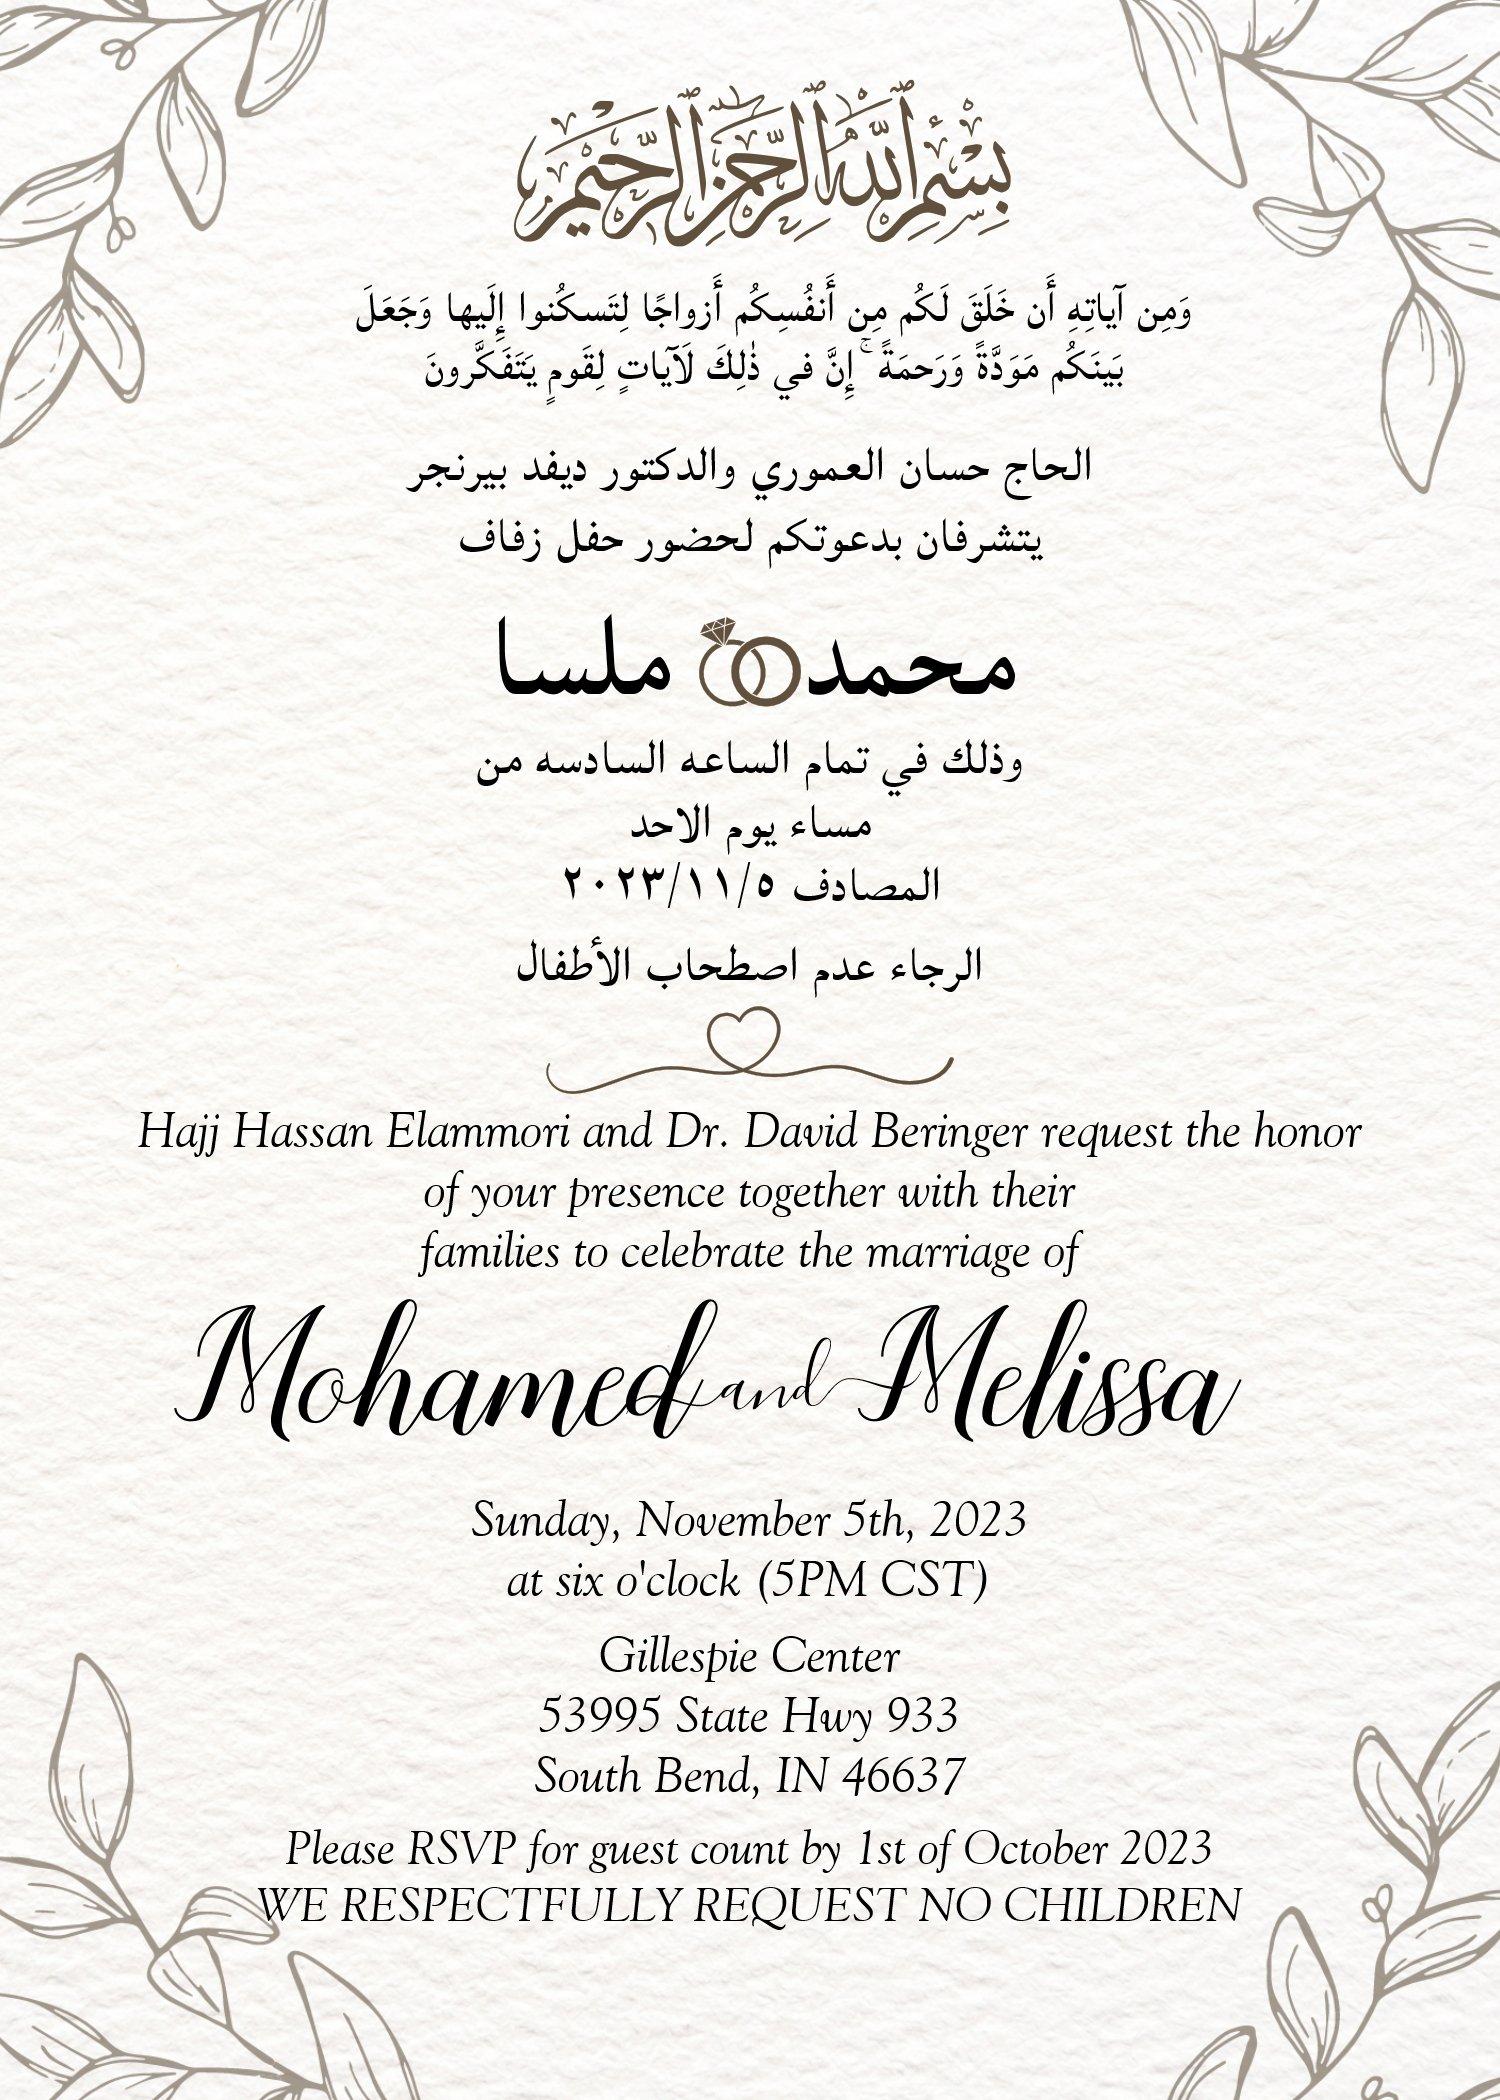 بِسْمِ ٱللَّٰهِ ٱلرَّحْمَٰنِ ٱلرَّحِيمِ
وَمِن آياتِهِ أَن خَلَقَ لَكُم مِن أَنفُسِكُم أَزواجًا لِتَسكُنوا إِلَيها وَجَعَلَ
بَينَكُم مَوَدَّةً وَرَحمَةً ۚ إِنَّ في ذٰلِكَ لَآياتٍ لِقَومٍ يَتَفَكَّرونَ
الحاج حسان العموري والدكتور ديفد بيرنجر
يتشرفان بدعوتكم لحضور حفل زفاف
محمد ملسا
وذلك في تمام الساعه السادسه من
مساء يوم الاحد
المصادف ٢٠٢٣/١١/٥
الرجاء عدم اصطحاب الأطفال
Hajj Hassan Elammori and Dr. David Beringer request the honor
of your presence together with their
families to celebrate the marriage of
Mohamed and Melissa
Sunday, November 5th, 2023
at six o'clock (5PM CST)
Gillespie Center
53995 State Hwy 933
South Bend, IN 46637
Please RSVP for guest count by 1st of October 2023
WE RESPECTFULLY REQUEST NO CHILDREN